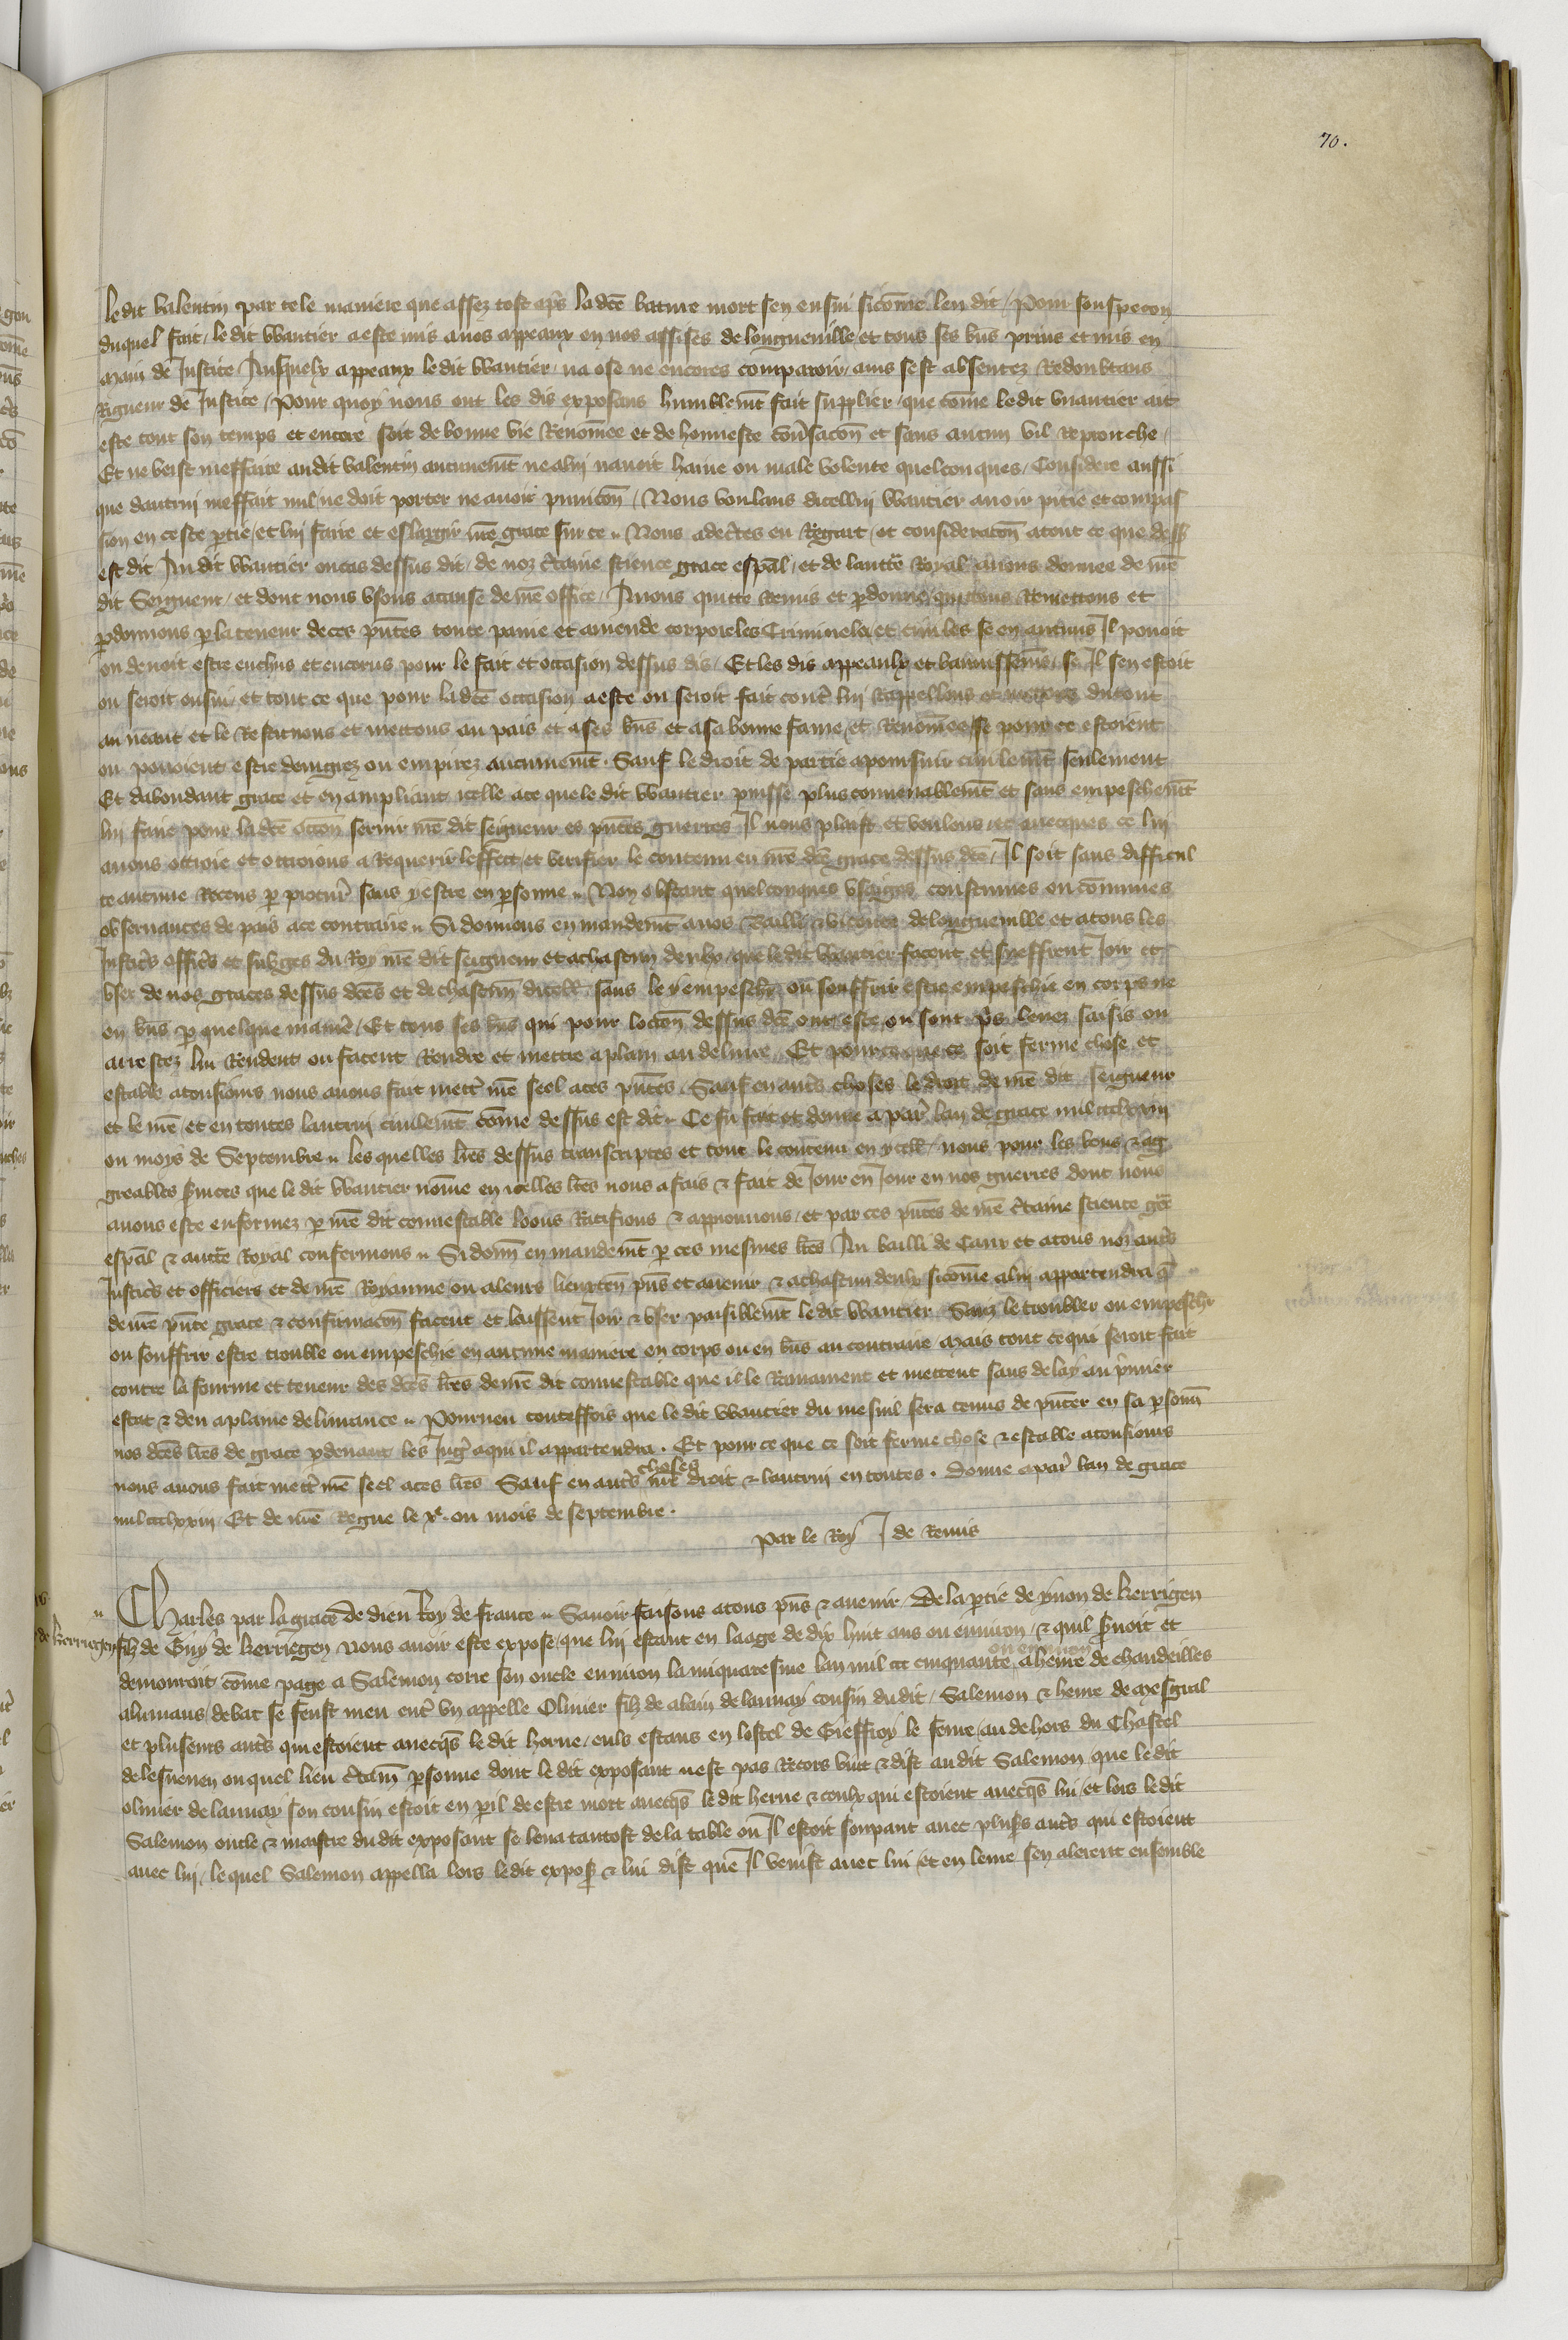 70.
le dit Valentin par tele maniere que assez tost apˢ la dc̄e bature mort sen ensui sicōme len dit / Pour souspecon
duquel fait / le dit Wautier a este mis a nos appeaux en nos assises de longueuille et tous ses bn̄s prins et mis en
main de Justice / Ausquelx appeaux le dit Wautier / na ose ne encores comparoir / ains sest absentez Redoubtans
Rigueur de Justice / Pour quoy nous ont les dis exposans humblemt̄ fait supplier / que cōme le dit Wautier ait
este tout son temps et encore soit de bonne vie Renōmee et de honneste cōuˢacōn et sans aucun vil Reprouche /
Et ne veist meffaire audit Valentin aucunemt̄ ne a lui nauoit haine ou male volente quelconques / Considere aussi
que dautrui meffait nul / ne doit porter ne auoir punicōn / Nous voulans dicellui Wautier auoir pitie et compas
sion en ceste ptie / et lui faire et eslargir nr̄e grace sur ce . Nous adecˢtes eu Regart / et consideracōn a tout ce que dess
est dit Au dit Wautier ou cas dessus dit / de noz cˢtaine science grace esp̄al / et de lauttē Royal auons donnee de nr̄e
dit Seigneur / et dont nous vsons a cause de nr̄e office / Auons quitte Remis et pdonne / quittons Remettons et
pdonnons p la teneur de ces pn̄tes toute paine et amende corporeles Crimineles et ciuiles se en aucuns Il pouoit
ou deuoit estre encheus et encorus pour le fait et occasion dessus dis / Et les dis appeaulx et bannissemēs / se Il sen estoit
ou seroit ensui / et tout ce que pour la dc̄e occasion a este ou seroit fait contˢ lui Rappellons et mettons du tout
au neant et le Restituons et mettons au pais et a ses bn̄s et a sa bonne fame / et Renōmee / se pour ce estoient
ou pouoient estre denigrez ou empirez aucunemt̄ . Sauf le droit de partie a poursuir ciuilemt̄ seulement
Et dabondant grace et en ampliant icelle a ce que le dit Wautier puisse plus conuenablemt̄ et sans empeschemt̄
lui faire pour la dc̄e occōn seruir nr̄e dit seigneur es pn̄tes guerres Il nous plaist et voulons / et auecques ce lui
auons ottroie et ottroions a Requerir leffect / et verifier le contenu en nr̄e dc̄e grace dessus dc̄e / Il soit sans difficul
te aucune Receus p procurˢ sans y estre en psonne . Non obstant quelconques vsaiges coustumes ou cōmunes
obseruances de pais a ce contraire . Si donnons en mandemt̄ a nos Bailli & viconte de longueuille et a tous les
Justicˢs officˢs et subges du Roy nr̄e dit seigneur et a chascun deulx / que le dit Wautier facent et seuffrent Joir et
vser de nos graces dessus dc̄es et de chascune dicell̄ sans le y empeschˢ ou souffrir estre empeschie en corps ne
en bn̄s p quelque manˢe / Et tous ses bn̄s qui pour loccōn dessus dc̄e ont este ou sont pˢs leuez saisis ou
arrestez lui Rendent ou facent Rendre et mettre a plain au deliure / Et pour ce que ce soit ferme chose et
estable a tousiours nous auons fait mettˢ nr̄e seel a ces pn̄tes . Sauf en autˢs choses le droit de nr̄e dit seigneur
et le nr̄e et en toutes lautrui ciuilemt̄ cōme dessus est dit . Ce fu fait et donne a parˢ lan de grace mil ccclxxiij
ou moys de Septembre . les quelles lr̄es dessus transcriptes et tout le contenu en ycell̄ / nous pour les bons & ag
greables sˢuices que le dit Wautier nōme en icelles lr̄es nous a fais & fait de Jour en Jour en nos guerres dont nous
auons este enformez p nr̄e dit connestable loons Ratifions & approuuons / et par ces pn̄tes de nr̄e cˢtaine science gr̄ce
esp̄al & auctē Royal confermons . Si donn̄ en mandemt̄ p ces mesmes lr̄es Au bailli de Caux et a tous noz autˢs
Justicˢs et officiers et de nr̄e Royaume ou a leurs lieuxten̄ pn̄s et auenir & a chascun deulx sicōme a lui appartendra q̄
de nr̄e pn̄te grace & confirmacōn facent et laissent Joir & vser paisiblemt̄ le dit Wautier Sanz le troubler ou empeschˢ
ou souffrir estre trouble ou empeschie en aucune maniere en corps ou en bn̄s au contraire Mais tout ce qui seroit fait
contre la fourme et teneur des dc̄es lr̄es de nr̄e dit connestable que il le Ramainent et mettent sans delay au pˢmier
estat & deu a plaine deliurance . Pourueu touteffois que le dit Wautier du mesnil sera tenus de pn̄ter en sa psonn̄
nos dc̄es lr̄es de grace p deuant les Jugˢ a qui il appartendra . Et pour ce que ce soit ferme chose & estable a tousiours
nous auons fait mettˢ nr̄e seel a ces lr̄es Sauf en autˢs choses nr̄e droit & lautrui en toutes . Donne a parˢ lan de grace
mil ccclxxiij Et de nr̄e Regne le xᵉ. ou mois de septembre .
Par le Roy J de Remis
de kerriegen
Charles par la grace de dieu Roy de france . Sauoir faisons a tous pn̄s & auenir / De la ptie de yuon de kerrigen
filz de Guy de kerriegen nous auoir este expose / que lui estant en laage de dix huit ans ou enuiron / & quil sˢuoit et
demouroit cōme page a Salemon corre son oncle enuiron la miquaresme lan mil ccc cinquante ou enuiron a heure de chandeilles
alumans / debat se feust meu entˢ vn appelle Oliuier filz de alain de launay cousin du dit / Salemon & herue de mesgral
et pluseurs autˢs qui estoient auecq̄s le dit herue / eulx estans en lostel de Gieffroy le feure / au dehors du Chastel
de lesneuen ou quel lieu cˢtain̄ psonne dont le dit exposant nest pas Recors vint & dist au dit Salemon / que le dit
oliuier de launay son cousin estoit en pil de estre mort auecq̄s le dit herue & ceulx qui estoient auecq̄s lui / et lors le dit
Salemon oncle & maistre du dit exposant se leua tantost de la table ou Il estoit souppant auec plusˢs autˢs qui estoient
auec lui / le quel Salemon appella lors le dit expoſ̄ & lui dist que Il venist auec lui / et en leure sen alerent ensemble